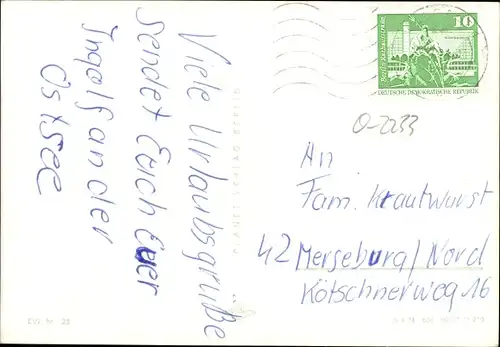 Viele Urlaubsgrüße
sendet Euch Euer
Ingolf an der
Ostsee
PLANET-VERLAG BERLIN
10
DEUTSCHE DEMOKRATISCHE REPUBLIK
O-2233
An
Fam. Krautwurst
42 Merseburg/Nord
Kötschnerweg 16